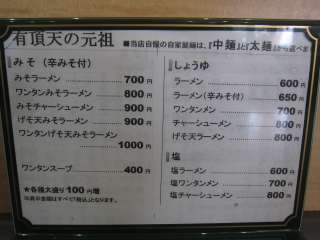 有頂天の元祖
■当店自慢の自家製麺は、『中麺』と『太麺』から選べま
みそ（辛みそ付）
みそラーメン 700円
ワンタンみそラーメン 800円
みそチャーシューメン 900円
げそ天みそラーメン 900円
ワンタンげそ天みそラーメン
1000円
ワンタンスープ 400円
★各種大盛り100円増
※表示金額はすべて「税込」となります。
しょうゆ
ラーメン 600円
ラーメン（辛みそ付） 650
ワンタンメン 700円
チャーシューメン 800円
げそ天ラーメン 800円
塩
塩ラーメン 600円
塩ワンタンメン 700円
塩チャーシューメン 800円